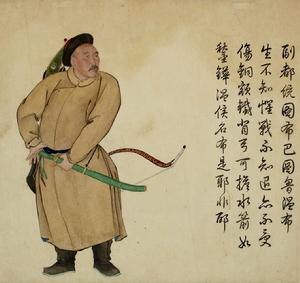 副都統圖布巴圖魯溫布
生不知懼戰不知退亦不受
傷銅額鐵背弓可擔水箭如
鏵溫侯名布是耶非耶